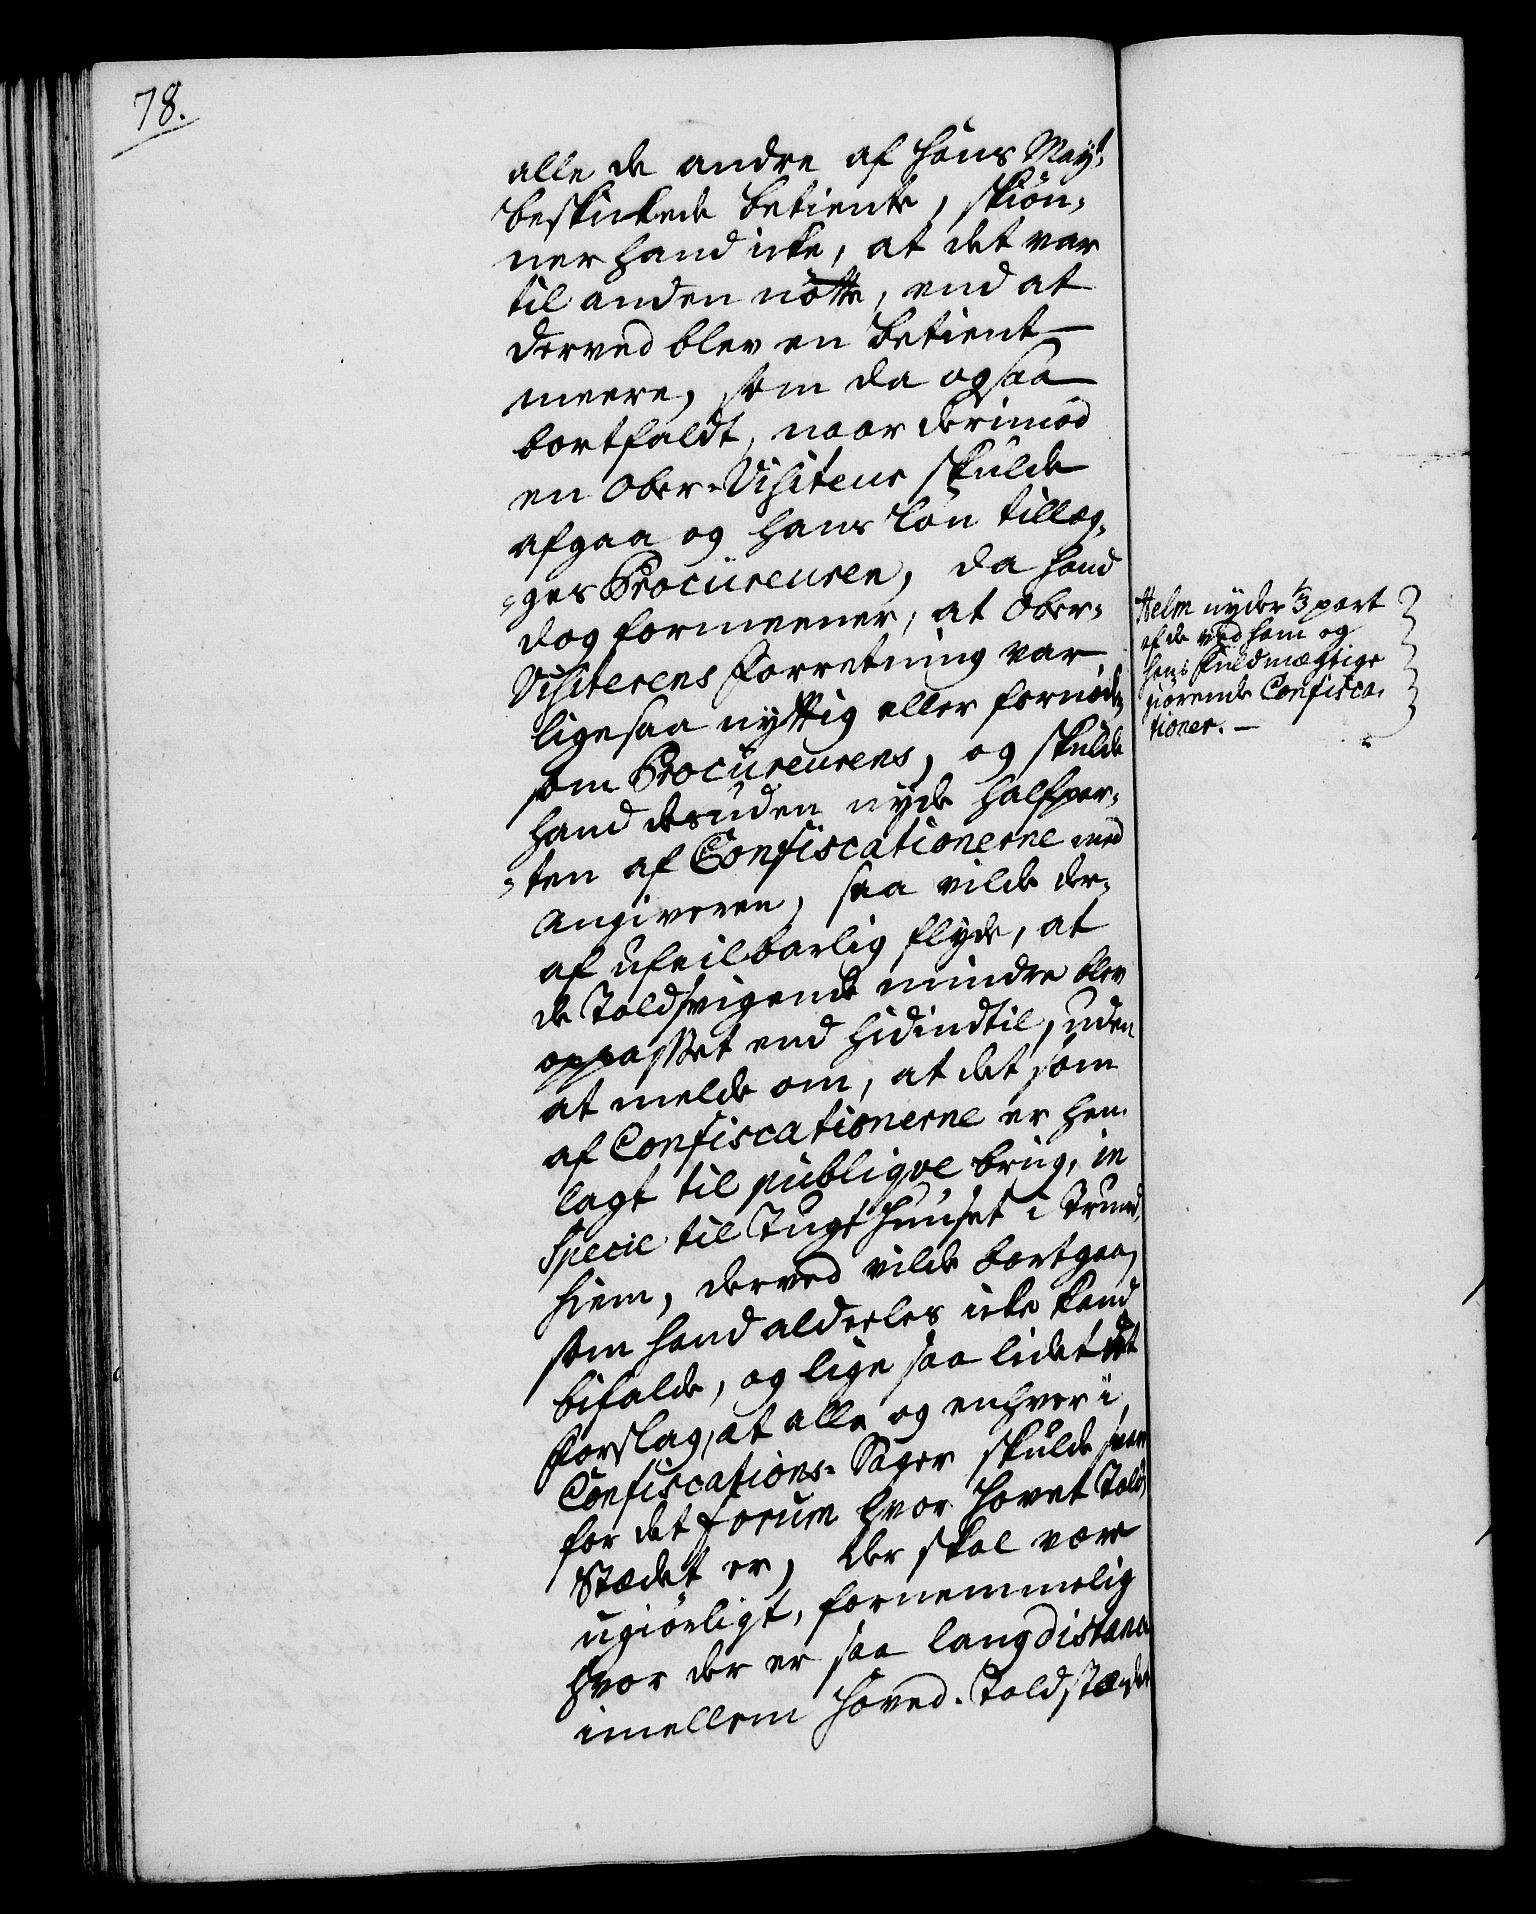 78.
alle de andre af Hans Mayt:
beskickede betiente, skiøn-
ner hand icke, at det var
til anden nøtte, end at
derved blev en betient
meere, som da ogsaa
bortfaldt, naar derimod
en Ober-Visiteur skulde
afgaa og hans løn tillæg-
-ges Procureuren, da hand
dog formeener, at Ober-
Visiterens forretning var
ligesaa nyttig eller fornøden
som Procureurens, og skulde
hand desuden nyde halfpar-
-ten af Confiscationerne med
Angiveren, saa vilde der-
af ufeilbarlig flyde, at
de Toldsvigende mindre blev
oppasset end hidindtil, uden
at melde om, at det som
af Confiscationerne er hen-
lagt til publiqve brug, in
Specie til Tugthuuset i Trund-
hiem, derved vilde bortgaa,
som hand aldeeles icke kand
bifalde, og lige saa lidet det
Forslag, at alle og enhver i
Confiscations-Sager skulde svare
for det forum hvor Hovet Told-
Stædet er, der skal være
ugiørligt, fornemmelig
hvor der er saa lang distance
imellem Hoved-Toldstæder
Helm nyder 1/3 part
af de ved ham og
hans Fuldmægtige
giørende Confisca-
tioner. -